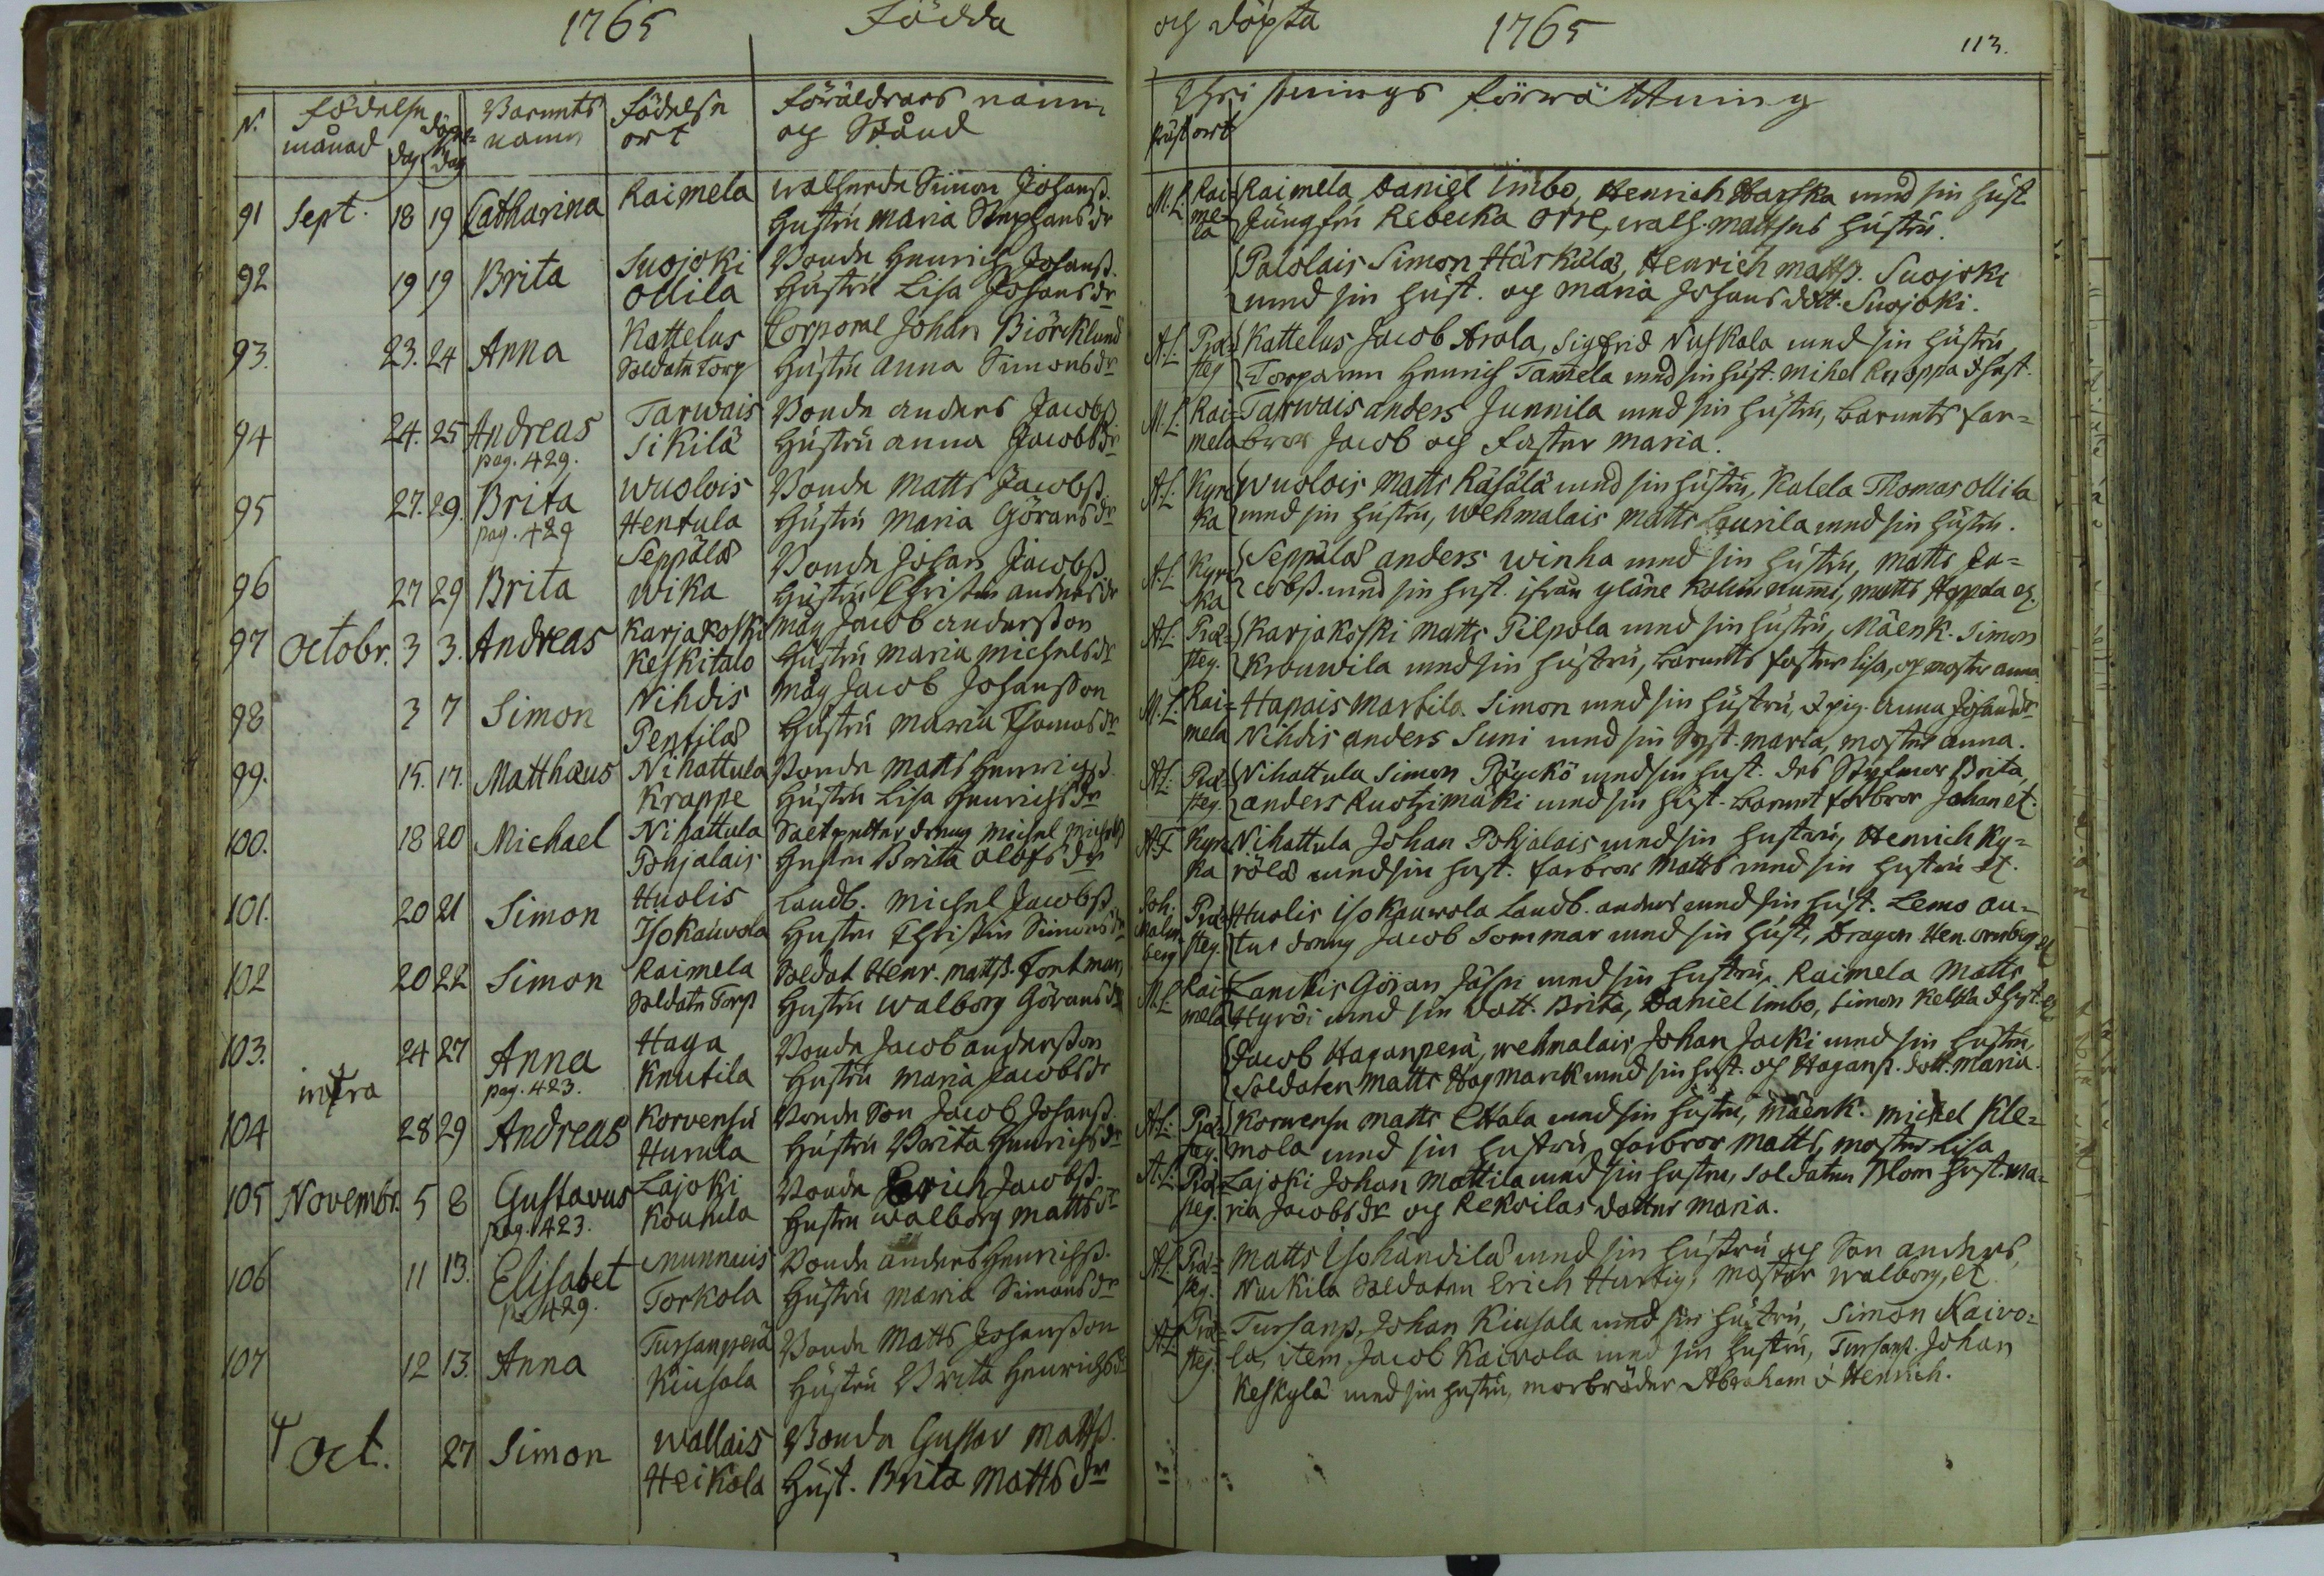 1765 Födda
N. Födelse månad dag Döpelse dag Barnets namn Födelse ort Föräldrars namn och Stånd
91 Sept. 18 19 Catharina Raimela Simon Johanß.
Hustru Maria Stephans dr
92 19 19 Brita Suojoki Bonde Henrich Johanß.
Ollila Hustru Lisa Johans dr
93. 23. 24 Anna Kattelus Corporal Johan Biörcklund
Soldate Torp Hustru Anna Simons dr
94 24. 25 Andreas Tarwais Bonde anders Jacobß
pag. 429. Sikilä Hustru anna Jacobs dr
95 27. 29. Brita Wuolois Bonde Matts Jacobß.
pag. 429 Hentula Hustru Maria Görans dr
96 27 29 Brita Seppälä Bonde Johan Jacobß
Wika Hustru Christin anders dr
97 Octobr. 3 3. Andreas Karjakoski måg Jacob anderßon
Keskitalo Hustru Maria michels dr
98 3 7 Simon Nihdis måg Jacob Johanßon
Pentilä Hustru Maria Thomas dr
99. 15. 17. Matthæus Nihattula Bonde Matts Henrichß.
Krappe Hustru Lisa Henrichs dr
100. 18 20 Michael Nihattula Saltpetter dreng Michel Michelß
Pohjalais Hustru Brita Olofs dr
101. 20 21 Simon Huolis Landb. Michel Jacobß.
Isokauvola Hustru Christin Simons dr
102 20 22 Simon Raimela Soldat Henr. Mattß. Fortman
Soldate Torp Hustru Walborg Görans dr
103. 24 27 Anna Haga Bonde Jacob anderßon
intra pag. 423. Knutila Hustru Maria Jacobs dr
104 28 29 Andreas Korvensu Bonde Son Jacob Johanß.
Hurula Hustru Brita Henrichs dr
105 Novembr. 5 8 Gustavus Lajoki Bonde Erich Jacobß.
pag. 423. Kouhila Hustru Walborg Matts dr
106 11 13. Elisabet Munnuis Bonde anders Henrichß.
p. 429. Torkola Hustru Maria Simons dr
107 12 13. Anna Tursanperä Bonde Matts Johanßon
Kiusala Hustru Brita Henrichs dr
Oct. 27 Simon Wallais Bonde Gustav Mattß.
Heikola Hust. Brita Matts dr
och döpta 1765 113.
Christnings förrättning
präst ort
M.L. Raimela Raimela Daniel Imbo, Henrich Harska med sin hust
Jungfru Rebecka Orre, walh. mattses hustru.
Palolais Simon Härkälä, Henrich mattß. Suojoki
med sin hust. och maria Johans dott. Suojoki.
A.L. Prästeg Kattelus Jacob Arola, Sigfrid Nuskala med sin hustru,
Torparen Henrich Tammela med sin hust. Mihel Roppa & hust.
M.L. Raimela Tarwais anders Junnila med sin hustru, barnets far=
bror Jacob och faster maria.
A.L. Kyrka Wuolois Matts Räsälä med sin hustru, Kalela Thomas Ollila
med sin hustru, Wehmalais Matts Laurila med sin hustru.
A.L. Kyrka Seppälä anders Winha med sin hustru, Matts Ja=
cobß. med sin hust. ifrån yläne, matts
A.L. Prästeg. Karjakoski Matts Pilpola med sin hustru, Mäenk. Simon
Krouwila med sin hustru, barnets faster Lisa, och moster anna.
M.L. Raimela Hanais Martila Simon med sin hustru, & pig. Anna Johans dr
Nihdis anders Suni med sin Syst. maria, moster anna.
A.L. Prästeg. Nihattula Simon Pöyckö med sin hust. des Styfmor Brita,
anders Ruotzimäki med sin hust. barnet farbror Johan etc.
A.F. Kyrka Nihattula Johan Pohjalais med sin hustru, Henrich Ky=
rölä med sin hust. farbror Matts med sin hustru etc.
Joh. Malmberg Prästeg. Huolis Isokauwola Landb. anders med sin hust. Lemo
dreng Jacob Tommar med sin hust, Dragon Hen. etc
M.L. Raimela Göran Jässi med sin hustru, Raimela Matts
Hyröi med sin dott. Brita, Daniel Imbo, Simon & hust. etc
Jacob Haganperä, wehmalais Johan Jacki med sin hustru,
Soldaten Matts Hagmarck med sin hust. och Haganp. dott. maria.
A.L. Prästeg. Korvensu Matts Ettala med sin hustru, Mäenk. Michel Kle=
mola med sin hustru, farbror Matts, moster Lisa
A.L. Prästeg. Lajoki Johan Mattila med sin hustru, Soldaten Blom hust. Ma=
ria Jacobs dr och Rekoilas dotter maria.
A.L. Prästeg. Matts Isohändilä med sin hustru och Son anders,
Nuckila Soldaten Erich Hurtig, moster walborg, etc
A.L. Prästeg. Tursanp. Johan Kiusala med sin hustru, Simon Kaivo=
la, item Jacob Kaivola med sin hustru, Tursanp. Johan
Keskylä med sin hustru, morbröder Abraham & Henrich.